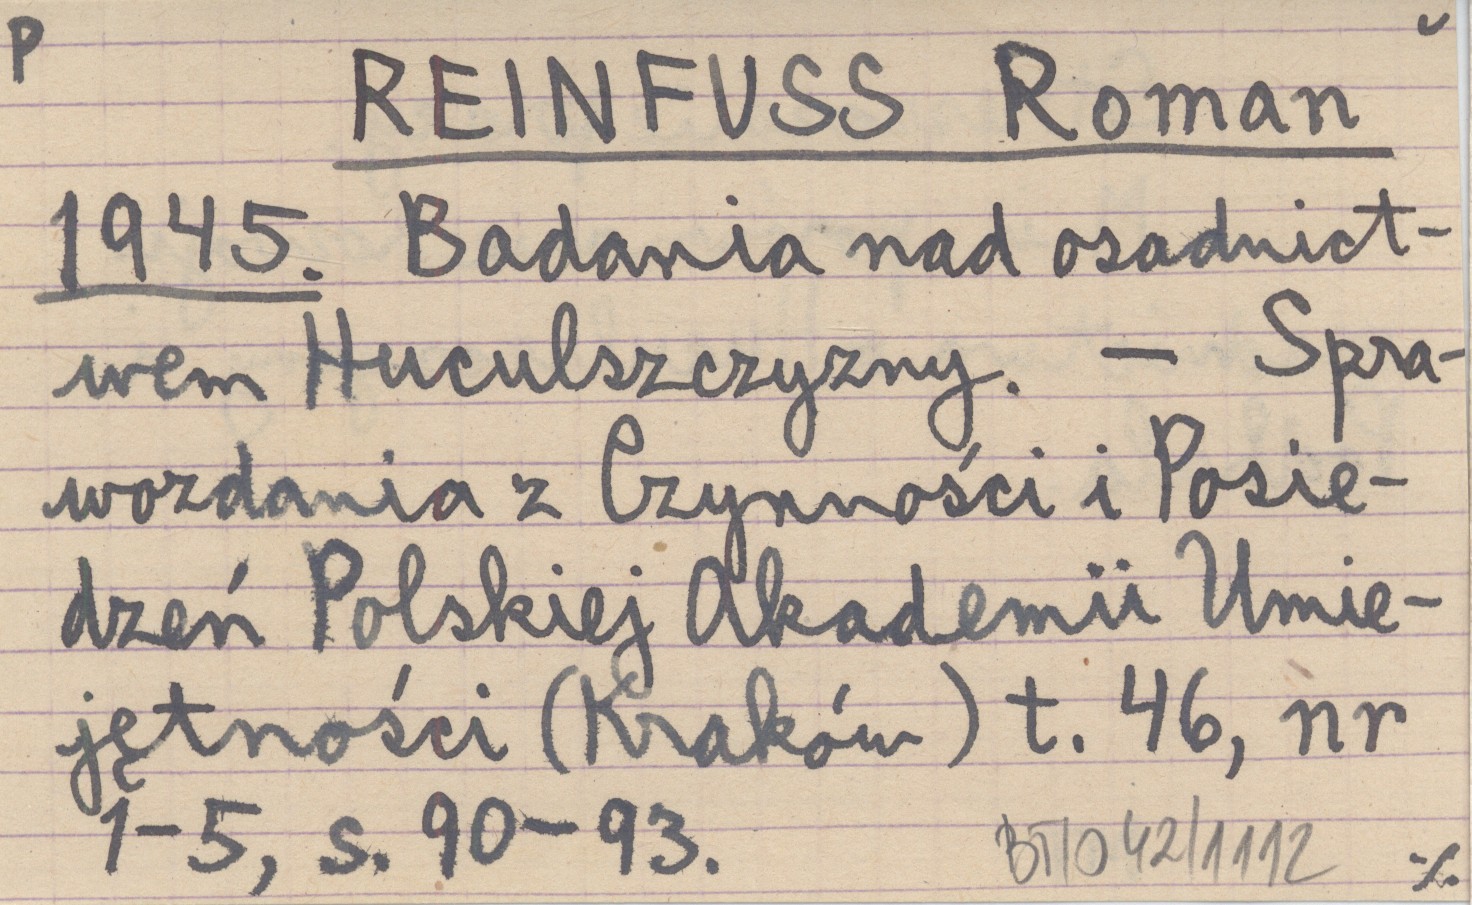 P
REINFUSS Roman
1945. Badania nad osadnict-
wem Huculszczyzny. — Spra-
wozdania z Czynności i Posie-
dzeń Polskiej Akademii Umie-
jętności (Kraków) t. 46, nr
1-5, s. 90-93.
BT/042/1112
·/.